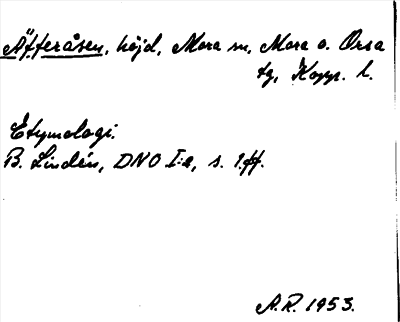 Äfteråsen, höjd, Mora sn, Mora o. Orsa
tg, Kopp. l.
Etymologi.
B. Lindén, DNO I:a, s. 1.ff.
A.R. 1953.